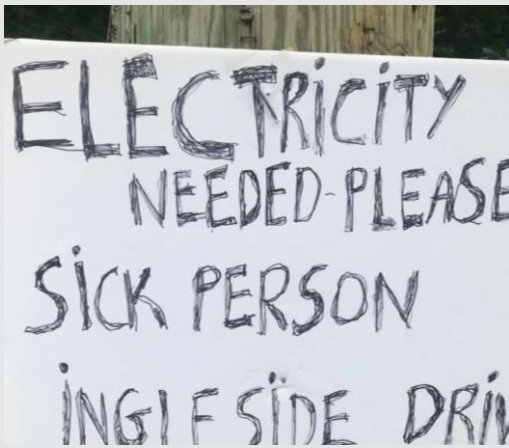 ELECTRiCiTY
NEEDED-PLEASE
SiCK PERSON
iNGLESiDE